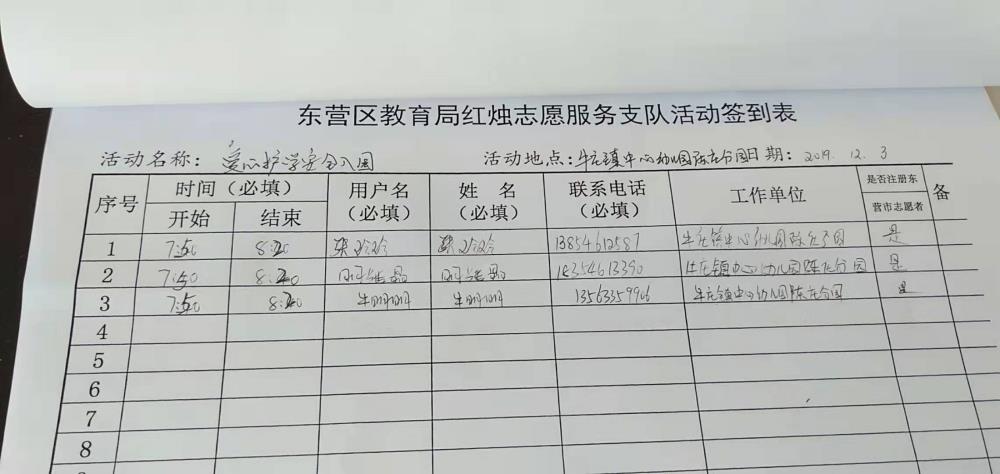 东营区教育局红烛志愿服务支队活动签到表
活动名称：爱心护学安全入园 活动地点：牛庄镇中心幼儿园陈庄分园 日期：2019.12.3
序号 时间（必填） 用户名（必填） 姓名（必填） 联系电话（必填） 工作单位 是否注册东营市志愿者 备
开始 结束
1 7:50 8:20 张玲玲 张玲玲 13854612587 牛庄镇中心幼儿园陈庄分园 是
2 7:50 8:20 18354613390 牛庄镇中心幼儿园陈庄分园 是
3 7:50 8:20 牛明明 牛明明 13563359906 牛庄镇中心幼儿园陈庄分园 是
4
5
6
7
8